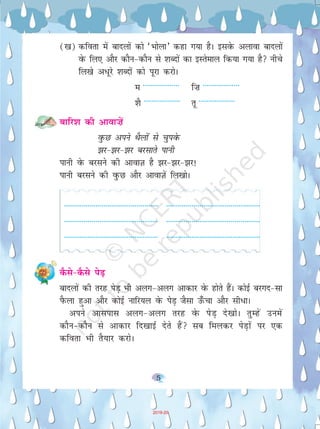 (ख) कविता में बादलों को 'भोला' कहा गया है। इसके अलावा बादलों
के लिए और कौन-कौन से शब्दों का इस्तेमाल किया गया है? नीचे
लिखे अधूरे शब्दों को पूरा करो।
म .................. जि ..................
शै .................. तू ..................
बारिश की आवाज़ें
कुछ अपने थैलों से चुपके
झर-झर-झर बरसाते पानी
पानी के बरसने की आवाज़ है झर-झर-झर!
पानी बरसने की कुछ और आवाज़ें लिखो।
कैसे-कैसे पेड़
बादलों की तरह पेड़ भी अलग-अलग आकार के होते हैं। कोई बरगद-सा
फैला हुआ और कोई नारियल के पेड़ जैसा ऊँचा और सीधा।
अपने आसपास अलग-अलग तरह के पेड़ देखो। तुम्हें उनमें
कौन-कौन से आकार दिखाई देते हैं? सब मिलकर पेड़ों पर एक
कविता भी तैयार करो।
5
© NCERT
be republished